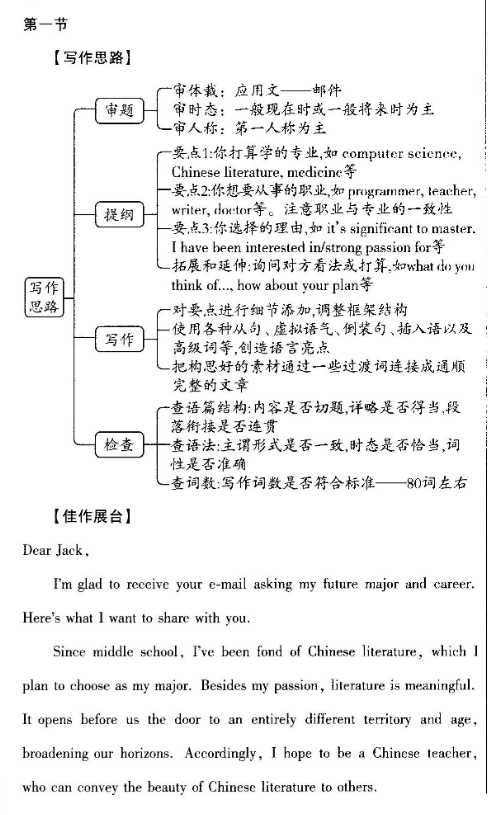 第一节
【写作思路】
审题
审体裁：应用文——邮件
审时态：一般现在时或一般将来时为主
审人称：第一人称为主
提纲
要点1:你打算学的专业,如 computer science,
Chinese literature, medicine等
要点2:你想要从事的职业,如 programmer, teacher,
writer, doctor等。注意职业与专业的一致性
要点3:你选择的理由,如 it's significant to master.
I have been interested in/strong passion for等
拓展和延伸:询问对方看法或打算,如what do you
think of..., how about your plan等
写作
思路
写作
对要点进行细节添加,调整框架结构
使用各种从句、虚拟语气、倒装句、插入语以及
高级词等,创造语言亮点
把构思好的素材通过一些过渡词连接成通顺
完整的文章
检查
查语篇结构:内容是否切题,详略是否得当,段
落衔接是否连贯
查语法:主谓形式是否一致,时态是否恰当,词
性是否准确
查词数:写作词数是否符合标准——80词左右
【佳作展台】
Dear Jack,
I'm glad to receive your e-mail asking my future major and career.
Here's what I want to share with you.
Since middle school, I've been fond of Chinese literature, which I
plan to choose as my major. Besides my passion, literature is meaningful.
It opens before us the door to an entirely different territory and age,
broadening our horizons. Accordingly, I hope to be a Chinese teacher,
who can convey the beauty of Chinese literature to others.